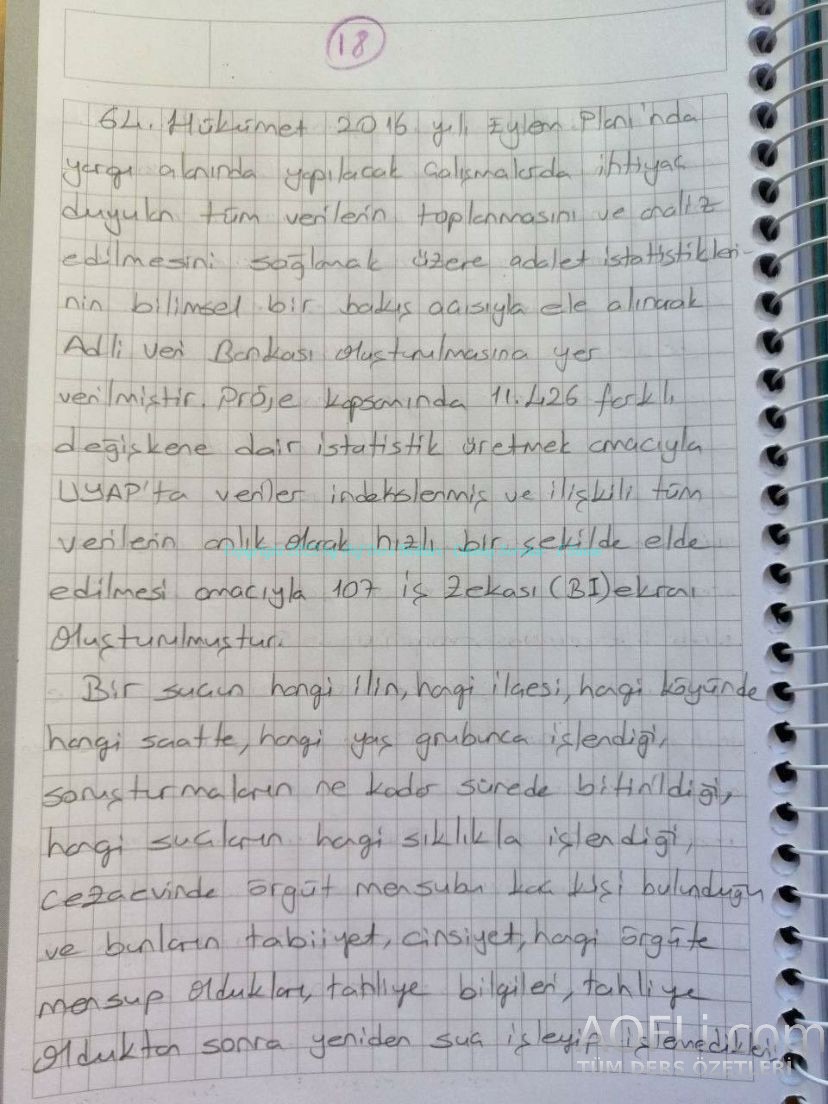 18
64. Hükümet 2016 yılı Eylem Planı'nda
yargı alanında yapılacak çalışmalarda ihtiyaç
duyulan tüm verilerin toplanmasını ve analiz
edilmesini sağlamak üzere adalet istatistikleri-
nin bilimsel bir bakış açısıyla ele alınarak
Adli Veri Bankası oluşturulmasına yer
verilmiştir. Proje kapsamında 11.426 farklı
değişkene dair istatistik üretmek amacıyla
UYAP'ta veriler indekslenmiş ve ilişkili tüm
verilerin anlık olarak hızlı bir şekilde elde
edilmesi amacıyla 107 iş Zekası (BI) ekranı
oluşturulmuştur.
Bir suçun hangi ilin, hangi ilçesi, hangi köyünde
hangi saatte, hangi yaş grubunca işlendiği,
soruşturmaların ne kadar sürede bitirildiği,
hangi suçların hangi sıklıkla işlendiği,
cezaevinde örgüt mensubu kaç kişi bulunduğu
ve bunların tabiiyet, cinsiyet, hangi örgüte
mensup oldukları, tahliye bilgileri, tahliye
olduktan sonra yeniden suç işleyip işlemedikleri
AOFLi.com
TÜM DERS ÖZETLERİ